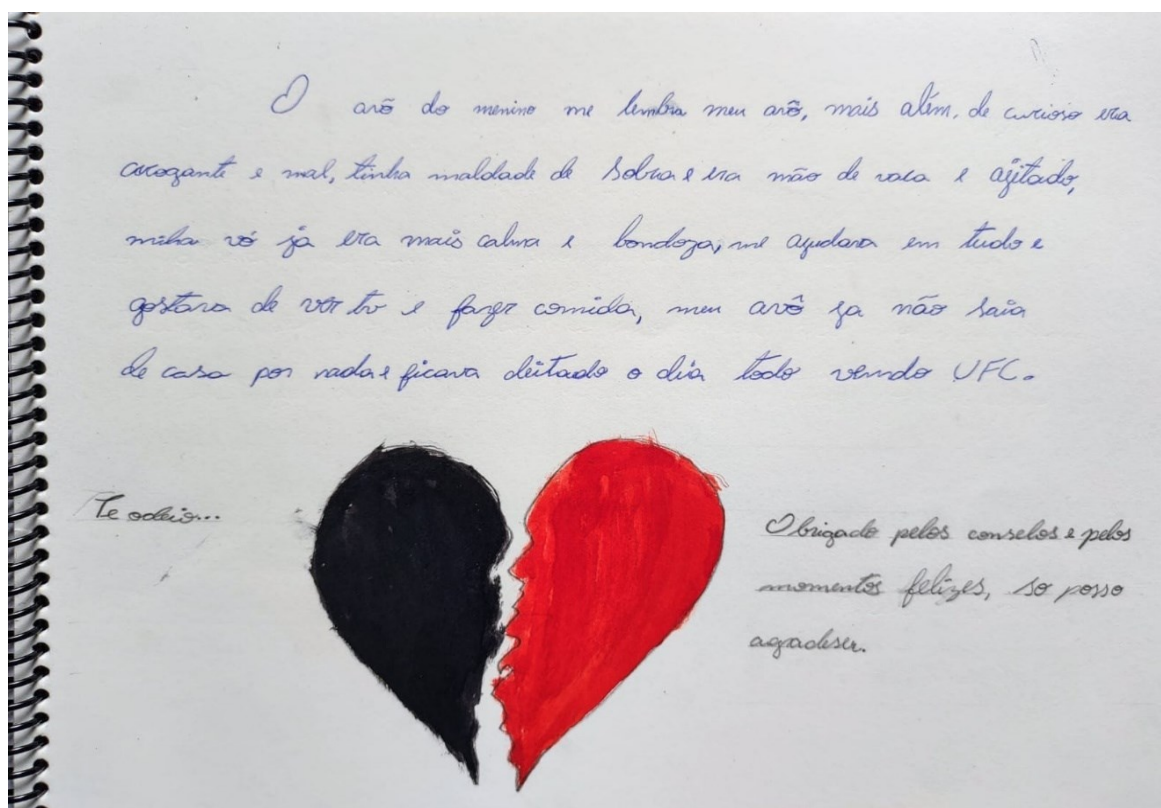 O avô do menino me lembra meu avô, mais além, de curioso era
arrogante e mal, tinha maldade de sobra e era mão de vaca e agitado,
minha vó ja era mais calma e bondoza, me ajudava em tudo e
gostava de ver tv e fazer comida, meu avô ja não saia
de casa por nada e ficava deitado o dia todo vendo UFC.
Te odeio...
Obrigado pelos conselos e pelos
momentos felizes, so posso
agradeser.